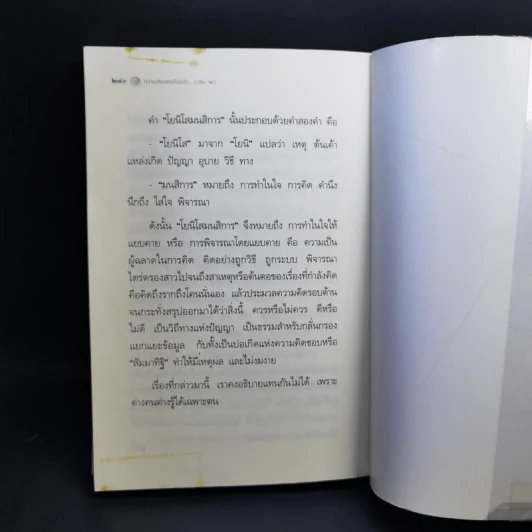 คำ “โยนิโสมนสิการ” นั้นประกอบด้วยคำสองคำ คือ
- “โยนิโส” มาจาก “โยนิ” แปลว่า เหตุ ต้นเค้า
แหล่งเกิด ปัญญา อุบาย วิธี ทาง
- “มนสิการ” หมายถึง การทำในใจ การคิด คำนึง
นึกถึง ใส่ใจ พิจารณา
ดังนั้น “โยนิโสมนสิการ” จึงหมายถึง การทำในใจให้
แยบคาย หรือ การพิจารณาโดยแยบคาย คือ ความเป็น
ผู้ฉลาดในการคิด คิดอย่างถูกวิธี ถูกระบบ พิจารณา
ไตร่ตรองสาวไปจนถึงสาเหตุหรือต้นตอของเรื่องที่กำลังคิด
คือคิดถึงรากถึงโคนนั่นเอง แล้วประมวลความคิดรอบด้าน
จนกระทั่งสรุปออกมาได้ว่าสิ่งนี้ ควรหรือไม่ควร ดีหรือ
ไม่ดี เป็นวิถีทางแห่งปัญญา เป็นธรรมสำหรับกลั่นกรอง
แยกแยะข้อมูล กับทั้งเป็นบ่อเกิดแห่งความคิดชอบหรือ
“สัมมาทิฐิ” ทำให้มีเหตุผล และไม่งมงาย
เรื่องที่กล่าวมานี้ เราคงอธิบายแทนกันไม่ได้ เพราะ
ต่างคนต่างรู้ได้เฉพาะตน